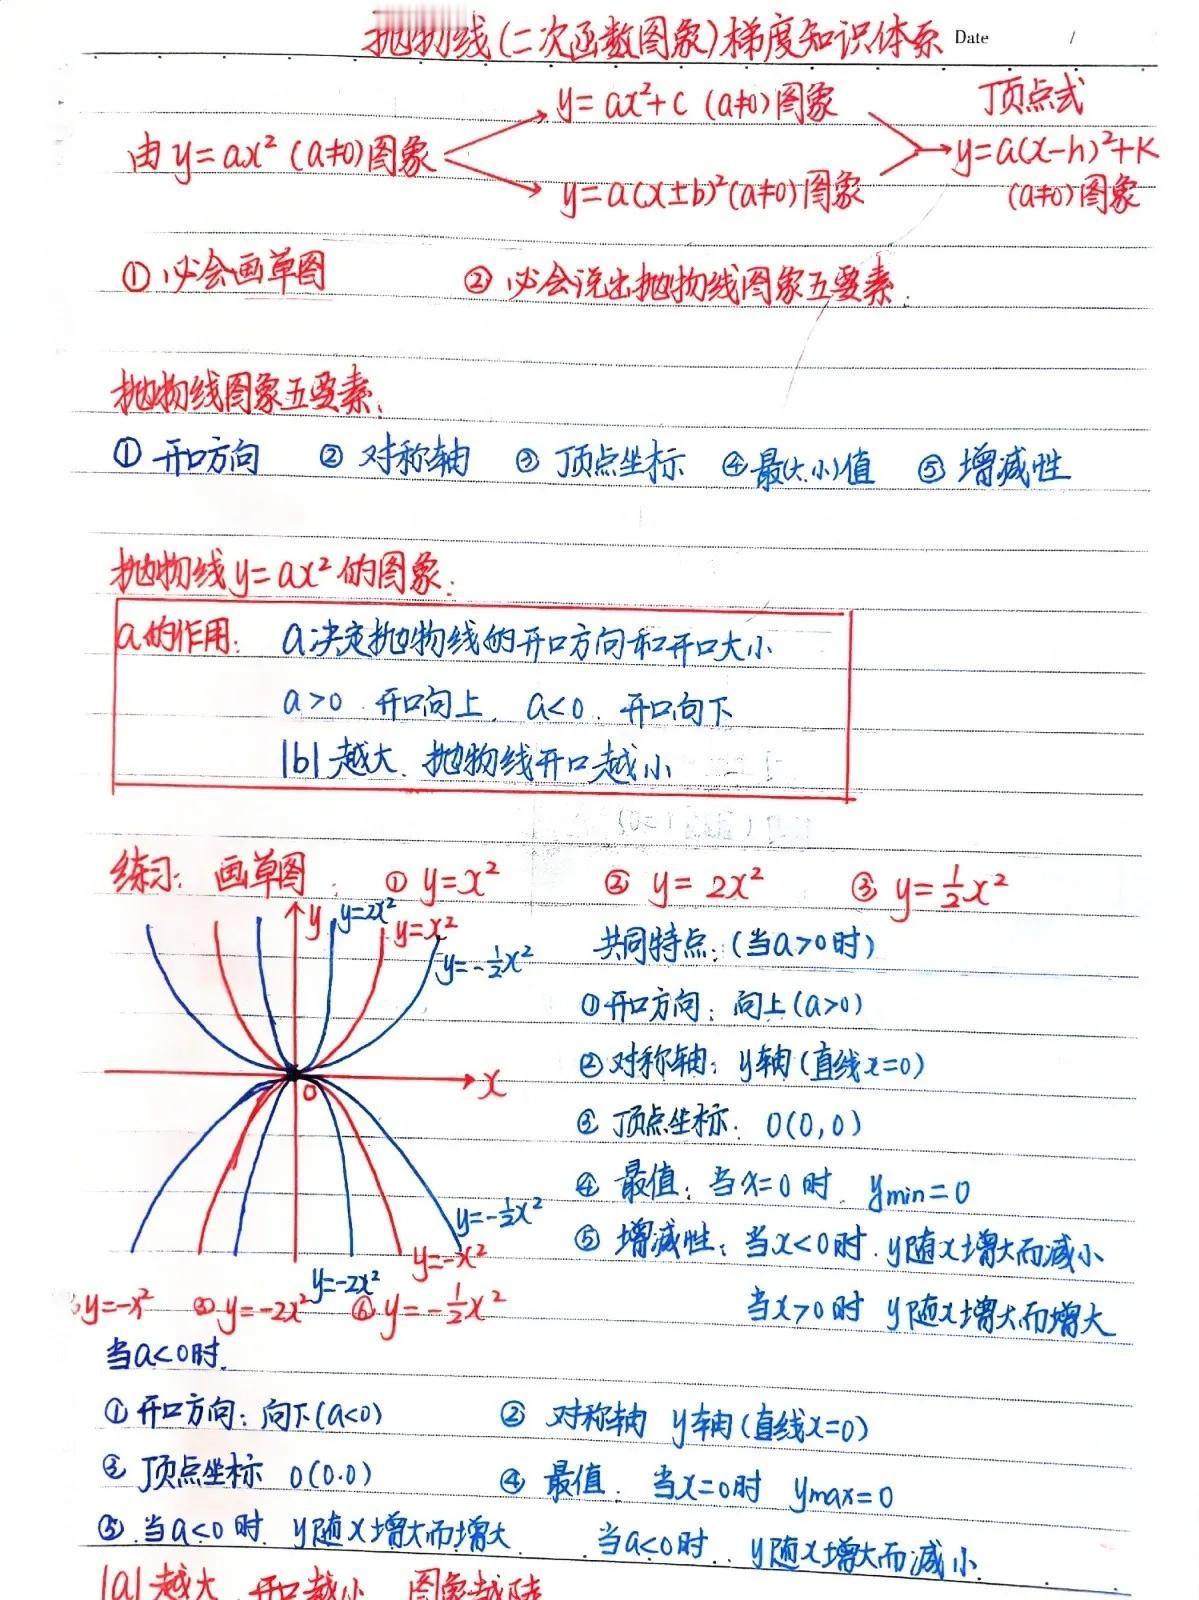 抛物线(二次函数图象)梯度知识体系 Date /
y=ax²+c (a≠0)图象 顶点式
由y=ax² (a≠0)图象 y=a(x-h)²+k
y=a(x±b)²(a≠0)图象 (a≠0)图象
① 必会画草图 ② 必会说出抛物线图象五要素.
抛物线图象五要素:
① 开口方向 ② 对称轴 ③ 顶点坐标 ④最(大.小)值 ⑤ 增减性
抛物线y=ax²的图象:
a的作用: a决定抛物线的开口方向和开口大小
a>0.开口向上. a<0.开口向下
|b|越大.抛物线开口越小
练习: 画草图: ① y=x² ② y=2x² ③ y=½x²
y y=2x² y=x² y=-½x²
x
0
共同特点:(当a>0时)
①开口方向: 向上(a>0)
②对称轴: y轴(直线x=0)
③ 顶点坐标: 0(0,0)
④ 最值: 当x=0时. ymin=0
⑤ 增减性: 当x<0时.y随x增大而减小
当x>0时 y随x增大而增大
y=-½x²
y=-x²
y=-2x²
y=-x² y=-2x² ⑥ y=-½x²
当a<0时.
① 开口方向: 向下(a<0) ② 对称轴 y轴(直线x=0)
③ 顶点坐标 0(0.0) ④ 最值. 当x=0时 ymax=0
⑤.当a<0时. y随x增大而增大 当a<0时.. y随x增大而减小
|a|越大 开口越小 图象越陡